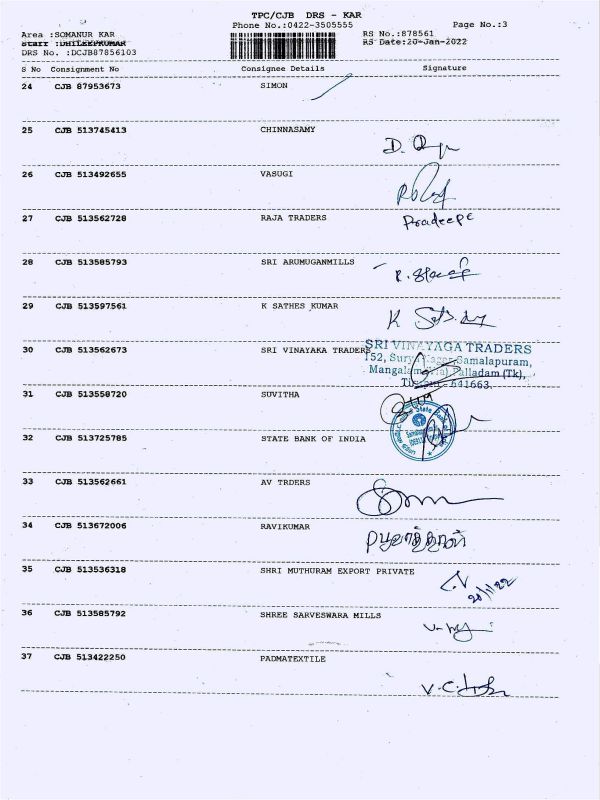 TPC/CJB DRS - KAR
Phone No.:0422-3505555 Page No.:3
Area :SOMANUR KAR RS No.:878561
Staff :DHILEEPKUMAR RS Date:20-Jan-2022
DRS No. :DCJB87856103
S No Consignment No Consignee Details Signature
24 CJB 87953673 SIMON
25 CJB 513745413 CHINNASAMY
26 CJB 513492655 VASUGI
27 CJB 513562728 RAJA TRADERS Pradeepe
28 CJB 513585793 SRI ARUMUGANMILLS
29 CJB 513597561 K SATHES KUMAR
30 CJB 513562673 SRI VINAYAKA TRADERS
SRI VINAYAGA TRADERS
152, Surya Nagar, Samalapuram,
Mangalam (Via), Palladam (Tk),
641663.
31 CJB 513558720 SUVITHA
32 CJB 513725785 STATE BANK OF INDIA
33 CJB 513562661 AV TRDERS
34 CJB 513672006 RAVIKUMAR
35 CJB 513536318 SHRI MUTHURAM EXPORT PRIVATE
20/1/22
36 CJB 513585792 SHREE SARVESWARA MILLS
37 CJB 513422250 PADMATEXTILE